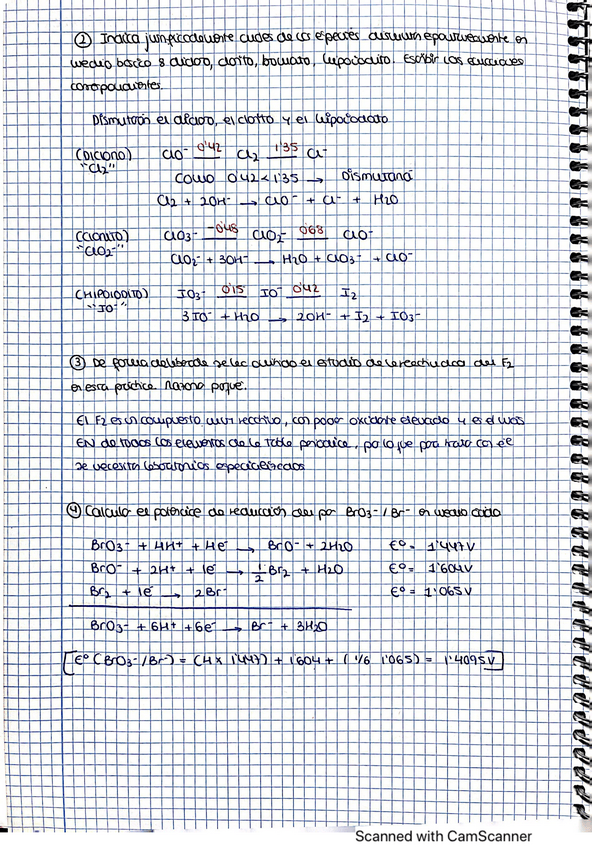 ② Indica justificadamente cuales de las especies dismutan espontáneamente en
medio básico: dicloro, clorito, bromato, hipoiodito. Escribir las ecuaciones
correspondientes.
Dismutarán el dicloro, el clorito y el hipoiodito
(DICLORO) ClO⁻ 0'42 Cl₂ 1'35 Cl⁻
"Cl₂"
Como 0'42 < 1'35 → Dismutará
Cl₂ + 2OH⁻ → ClO⁻ + Cl⁻ + H₂O
(CLORITO) ClO₃⁻ -0'48 ClO₂⁻ 0'68 ClO⁻
"ClO₂⁻"
ClO₂⁻ + 3OH⁻ → H₂O + ClO₃⁻ + ClO⁻
(HIPOIODITO) IO₃⁻ 0'15 IO⁻ 0'42 I₂
"IO⁻"
3IO⁻ + H₂O → 2OH⁻ + I₂ + IO₃⁻
③ De forma deliberada se ha omitido el estudio de la reactividad del F₂
en esta práctica. Razona porqué.
El F₂ es un compuesto muy reactivo, con poder oxidante elevado y es el más
EN de todos los elementos de la Tabla periódica, por lo que para tratar con él
se necesita laboratorios especializados
④ Calcula el potencial de reducción del par BrO₃⁻/Br⁻ en medio ácido
BrO₃⁻ + 4H⁺ + 4e⁻ → BrO⁻ + 2H₂O E° = 1'447V
BrO⁻ + 2H⁺ + 1e⁻ → 1/2 Br₂ + H₂O E° = 1'604V
Br₂ + 1e⁻ → 2Br⁻ E° = 1'065V
BrO₃⁻ + 6H⁺ + 6e⁻ → Br⁻ + 3H₂O
E° (BrO₃⁻/Br⁻) = (4 x 1'447) + 1'604 + (1/6 1'065) = 1'4095V
Scanned with CamScanner